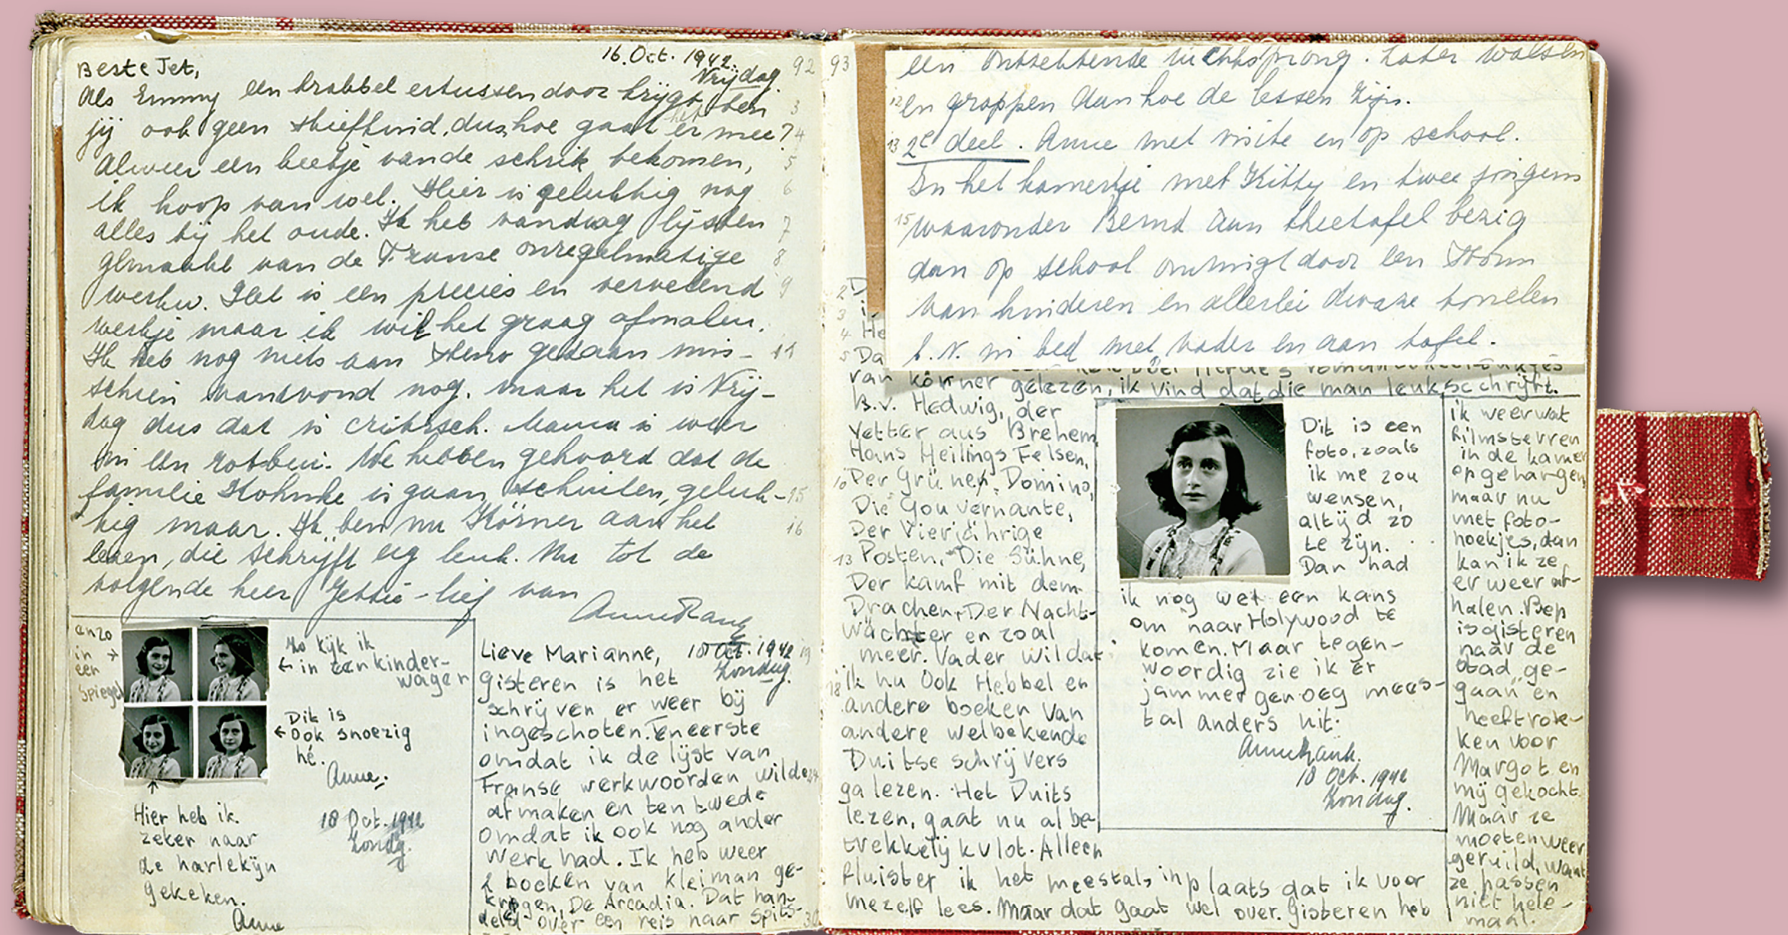 16. Oct. 1942.
Vrijdag.
92
Beste Jet,
Als Emmy een krabbel ertussendoor krijgt, ben
jij ook geen stiefkind, dus hoe gaat het er mee?
Alweer een beetje van de schrik bekomen,
ik hoop van wel. Hier is gelukkig nog
alles bij het oude. Ik heb vandaag lijsten
gemaakt van de Franse onregelmatige
werkw. Het is een precies en vervelend
werkje maar ik wil het graag afmaken.
Ik heb nog niets aan Steno gedaan mis-
schien vanavond nog, maar het is Vrij-
dag dus dat is critisch. Mama is weer
in een rotbui. We hebben gehoord dat de
familie is gaan schuilen, geluk-
kig maar. Ik ben nu Körner aan het
lezen, die schrijft erg leuk. Nu tot de
volgende keer Jettie-lief van
Anne Frank
enzo
in
een
spiegel
Zo kijk ik
in een kinder-
wagen
Dit is
ook snoezig
hé.
Anne.
18 Oct. 1942
Zondag.
Hier heb ik
zeker naar
de harlekijn
gekeken.
Anne
Lieve Marianne,
18 Oct. 1942
Zondag.
gisteren is het
schrijven er weer bij
ingeschoten. Ten eerste
omdat ik de lijst van
Franse werkwoorden wilde
afmaken en ten twede
omdat ik ook nog ander
werk had. Ik heb weer
2 boeken van Kleiman ge-
kregen, De Arcadia. Dat han-
delt over een reis naar Spits-
93
een ontzettende luchtsprong. Later walsen
en grappen dan hoe de lessen zijn.
2e deel. Anne met visite en op school.
In het kamertje met Kitty en twee jongens
waaronder Bernd aan theetafel bezig
dan op school omringt door een
van kinderen en allerlei dwaze tonelen
b.v. in bed met vader en aan tafel.
van körner gelezen, ik vind dat die man leuk schrijft.
B.v. Hedwig, der
Vetter aus Brehem
Hans Heilings Felsen,
Der Grünen Domino,
Die Gouvernante,
Der Vierjährige
Posten, Die Sühne,
Der kamf mit dem
Drachen, Der Nacht-
wachter en zoal
meer. Vader wil dat
ik nu ook Hebbel en
andere boeken van
andere welbekende
Duitse schrijvers
ga lezen. Het Duits
lezen, gaat nu al be-
trekkelijk vlot. Alleen
fluister ik het meestal inplaats dat ik voor
mezelf lees. Maar dat gaat wel over. Gisteren heb
Dit is een
foto, zoals
ik me zou
wensen,
altijd zo
te zijn.
Dan had
ik nog wel een kans
om naar Holywood te
komen. Maar tegen-
woordig zie ik er
jammer genoeg mees-
tal anders uit.
Anne Frank.
18 Oct. 1942
Zondag.
ik weer wat
filmsterren
in de kamer
opgehangen
maar nu
met foto-
hoekjes, dan
kan ik ze
er weer af-
halen. Bep
is gisteren
naar de
stad ge-
gaan en
heeft rok-
ken voor
Margot en
mij gekocht.
Maar ze
moeten weer
geruild, want
ze passen
niet hele-
maal.